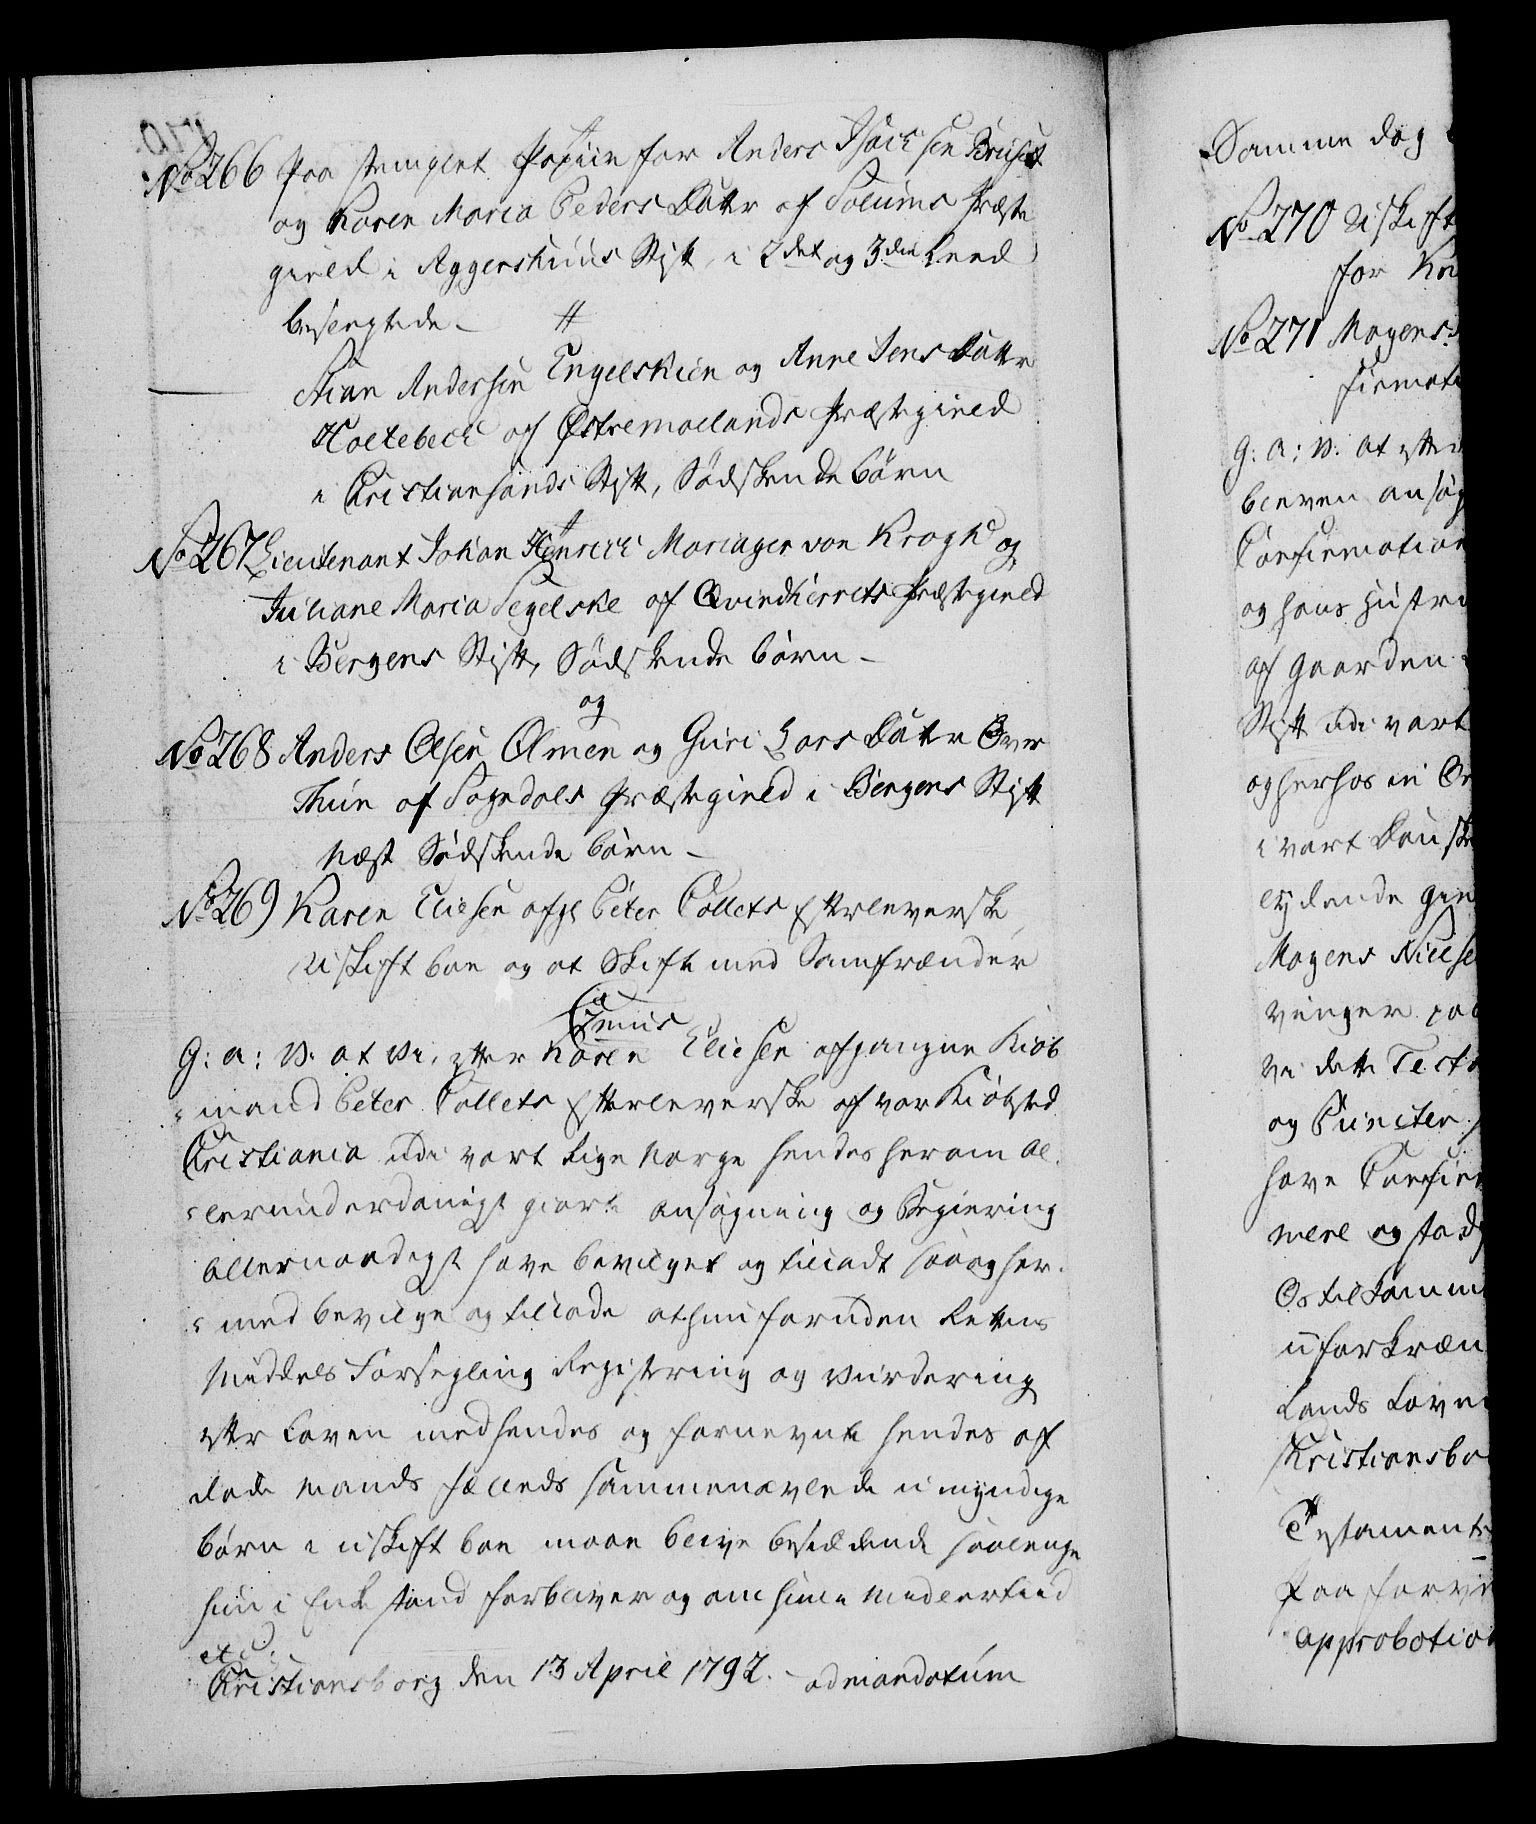 No 266 paa stemplet Papiir for Anders Isachsen Bruset
og Karen Maria Peders Datter af Solums Præste
gield i Aggershuus Stift, i 2det og 3die Leed
besvogrede -
Stian Andersen Engelskien og Anne Jens Datter
Holtebech af Østremolands Præstegield
i Christiansands Stift, Södskende Börn
No 267 Lieutenant Johan Henrich Mariager von Krogh og
Juliane Maria Segelske af Qvindherrets Præstegield
i Bergens Stift, Södskende börn -
og
No 268 Anders Olsen Olmen og Guri Lars Datter Over
Thun af Sogndals Præstegield i Bergens Stift
Næst Södskende börn -
No 269 Karen Eliesen afgl Peter Collets Efterleverske
Uskift boe og at Skifte med Samfrænder
G: a: V. at Vi, efter Karen Eliesen afgangne Kiöb
mand Peter Collets Efterleverske af vor Kiöbsted
Christiania udi vort Rige Norge hendes herom al
lerunderdanigst giorte Ansögning og Begiering
allernaadigst have bevilget og tilladt saa og her
med bevilge og tillade at hun foruden Rettens
Middels Forsegling Registering og Vurdering
efter Loven med hendes og fornevnte hendes af
döde Mands fælleds sammenavlede umyndige
börn i uskift boe maae blive besiddende saalenge
hun i Enke stand forbliver og om hun imidlertiid
etc:
Christiansborg den 13 April 1792. - ad mandatum
Samme dag
No 270 Uskift
for
No 271 Mogens
firmati
G: a: V. at efter
bleven ansög
Confirmation
og hans Hustru
af Gaarden
Stift udi vort
og herhos in
i vort Danske
lydende
Mogens Nielse
vinger paa
Vi dette Testa
og Puncter
have Confir
mere og stad
Os tilkomm
uforkræn
Lands Loven
Christiansbo
Testament
paa
approbation